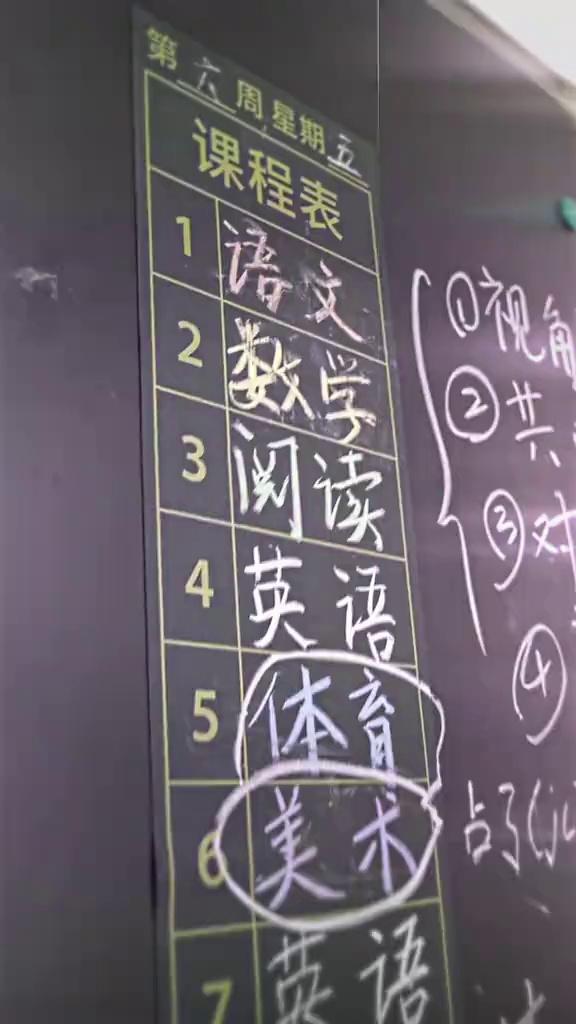 第六周星期五
课程表
1 语文
2 数学
3 阅读
4 英语
5 体育
6 美术
7 英语
①视角
②共
③对
④
占了